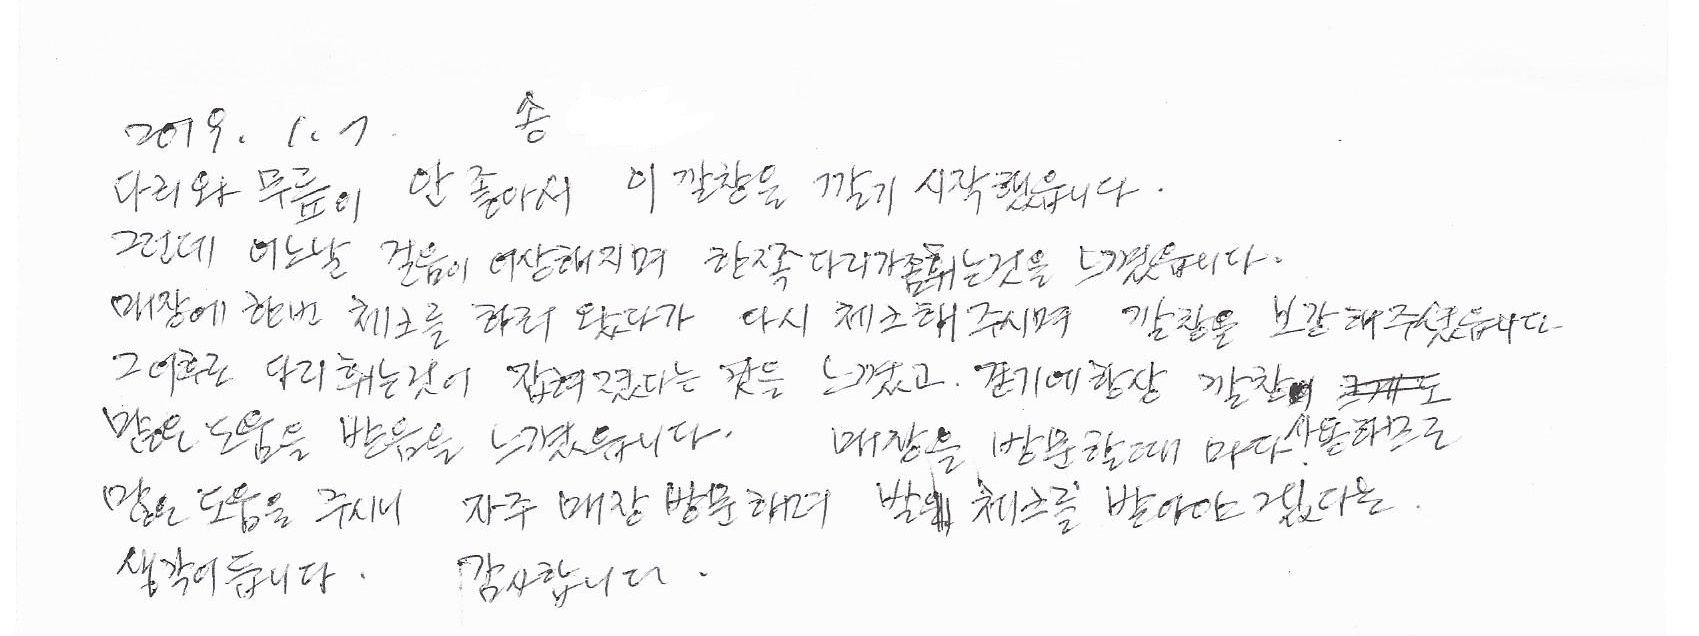 2019. 1. 7. 송
다리와 무릎이 안 좋아서 이 깔창을 깔기 시작했읍니다.
그런데 어느날 걸음이 이상해지며 한쪽다리가 좀 휘는것을 느꼈읍니다.
매장에 한번 체크를 하러 왔다가 다시 체크해 주시며 깔창을 보강해주셨읍니다
그 이후로 다리 휘는것이 잡혀졌다는 것을 느꼈고. 걷기에 항상 깔창 도
많은 도움을 받음을 느꼈읍니다. 매장을 방문할때 마다 사용하므로
많은 도움을 주시니 자주 매장 방문하며 발의 체크를 받아야 겠다는.
생각이 듭니다. 감사합니다.